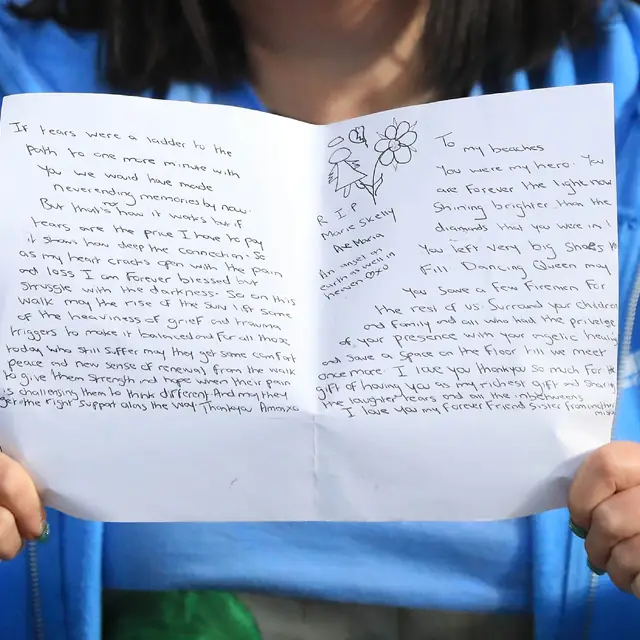 If tears were a ladder to the
path to one more minute with
you we would have made
neverending memories by now.
But that's not how it works but if
tears are the price I have to pay
it shows how deep the connection. So
as my heart cracks open with the pain
and loss I am forever blessed but
struggle with the darkness. So on this
walk may the rise of the sun lift some
of the heaviness of grief and trauma
triggers to make it balanced and for all those
today who still suffer may they get some comfort
peace and new sense of renewal from the walk
to give them strength and hope when their pain
is challenging them to think different. And may they
get the right support along the way. Thankyou
R I P
Marie Skelly
Ave Maria
An angel on
earth as well in
heaven
To my beaches
You were my hero. You
are forever the light now
shining brighter than the
diamonds that you were in l
You left very big shoes to
Fill. Dancing Queen my
You save a few firemen for
the rest of us. Surround your children
and family and all who had the privelge
of your presence with your
and save a space on the floor till we meet
once more. I love you thankyou so much for the
gift of having you as my richest gift and sharing
the laughter tears and all the inbetweens
I love you my forever friend sister from